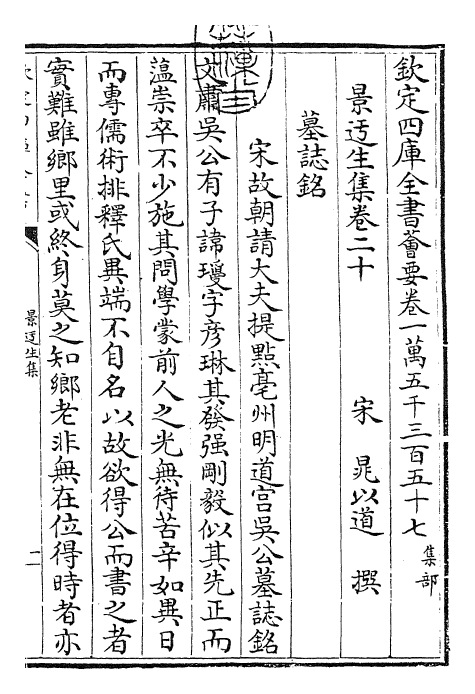 欽定四庫全書薈要卷一萬五千三百五十七 集部
景迃生集卷二十 宋 晁以道 撰
墓誌銘
宋故朝請大夫提點亳州明道宮吳公墓誌銘
文肅吳公有子諱瓊字彦琳其發强剛毅似其先正而
薀崇卒不少施其問學蒙前人之光無待苦辛如異日
而專儒術排釋氏異端不自名以故欲得公而書之者
實難雖鄉里或終身莫之知鄉老非無在位得時者亦
景迃生集